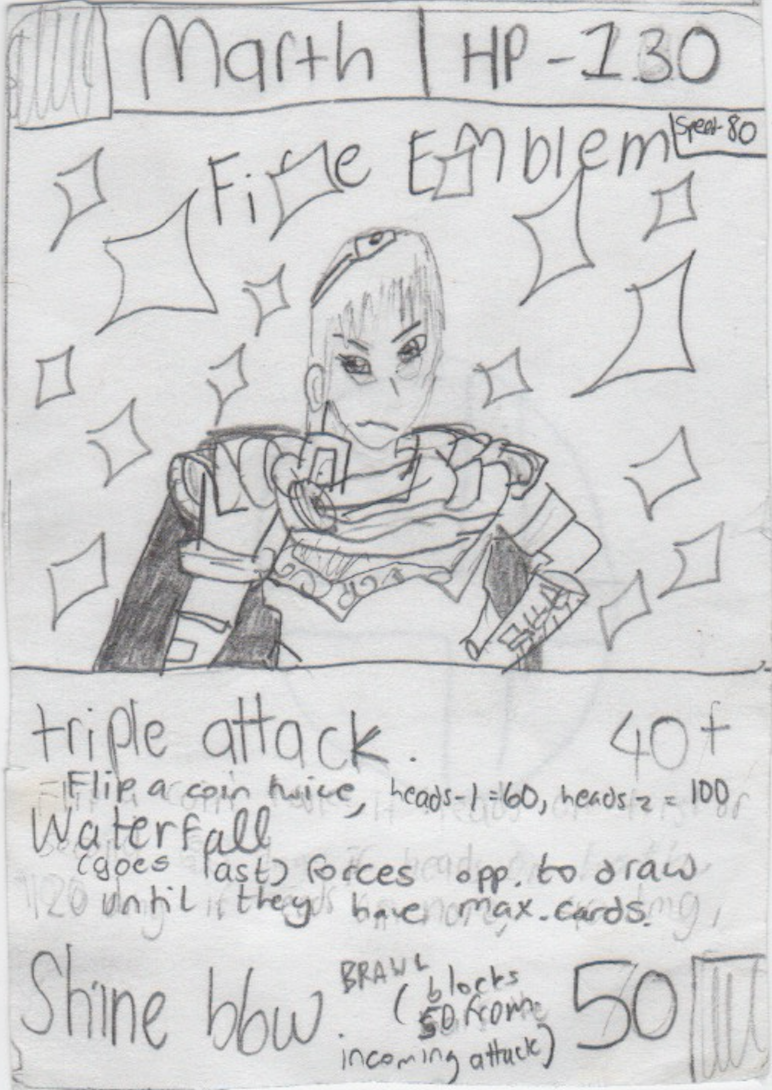 Marth | HP - 130
Fire Emblem
Speed-80
triple attack. 40+
Flip a coin twice, heads-1=60, heads 2 = 100
Waterfall
(goes last) forces opp. to draw
until they have max. cards.
Shine bbw. 50
BRAWL
(blocks
50 from
incoming attack)